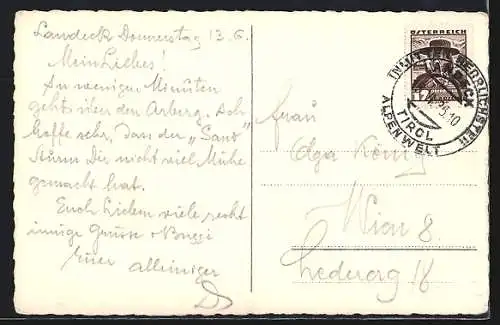 Landeck Donnerstag 13.6.
Mein Liebes!
In wenigen Minuten
geht's über den Arlberg. Ich
hoffe sehr, dass der „Sand"
Sturm Dir nicht viel Mühe
gemacht hat.
Euch Lieben viele recht
innige Grüsse + Bussi
Euer alleiniger
ÖSTERREICH
12
INMITTEN HERRLICHSTER
LANDECK
TIROL
ALPENWELT
Frau
Olga König
Wien 8.
Ledererg 18